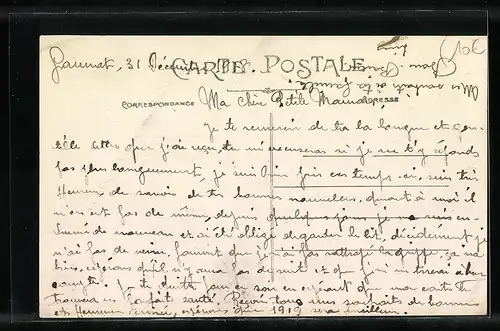 Gannat, 31 Décembre 1918.
CARTE POSTALE
CORRESPONDANCE
ADRESSE
Ma chère Petite Maman
Je te remercie de ta longue et
lettre que j'ai reçue, tu m'excuseras si je ne t'y réponds
pas plus longuement, je suis ces temps-ci, suis très
heureux de savoir de tes bonnes nouvelles, quant à moi il
n'en est pas de même, depuis quelques jours je me suis
de nouveau et ai été obligé de garder le lit, décidément je
n'ai pas de veine, pourvu que je n'ai pas rattrapé la grippe, ça va
bien, espérons qu'il n'y aura pas de suite et que j'en tirerai à bon
compte. Je te quitte pour ce soir en espérant que ma carte te
trouvera en parfaite santé. Reçois tous mes souhaits de bonne
et heureuse année, espérons que 1919 sera meilleur.
Mes souhaits à la famille
10€